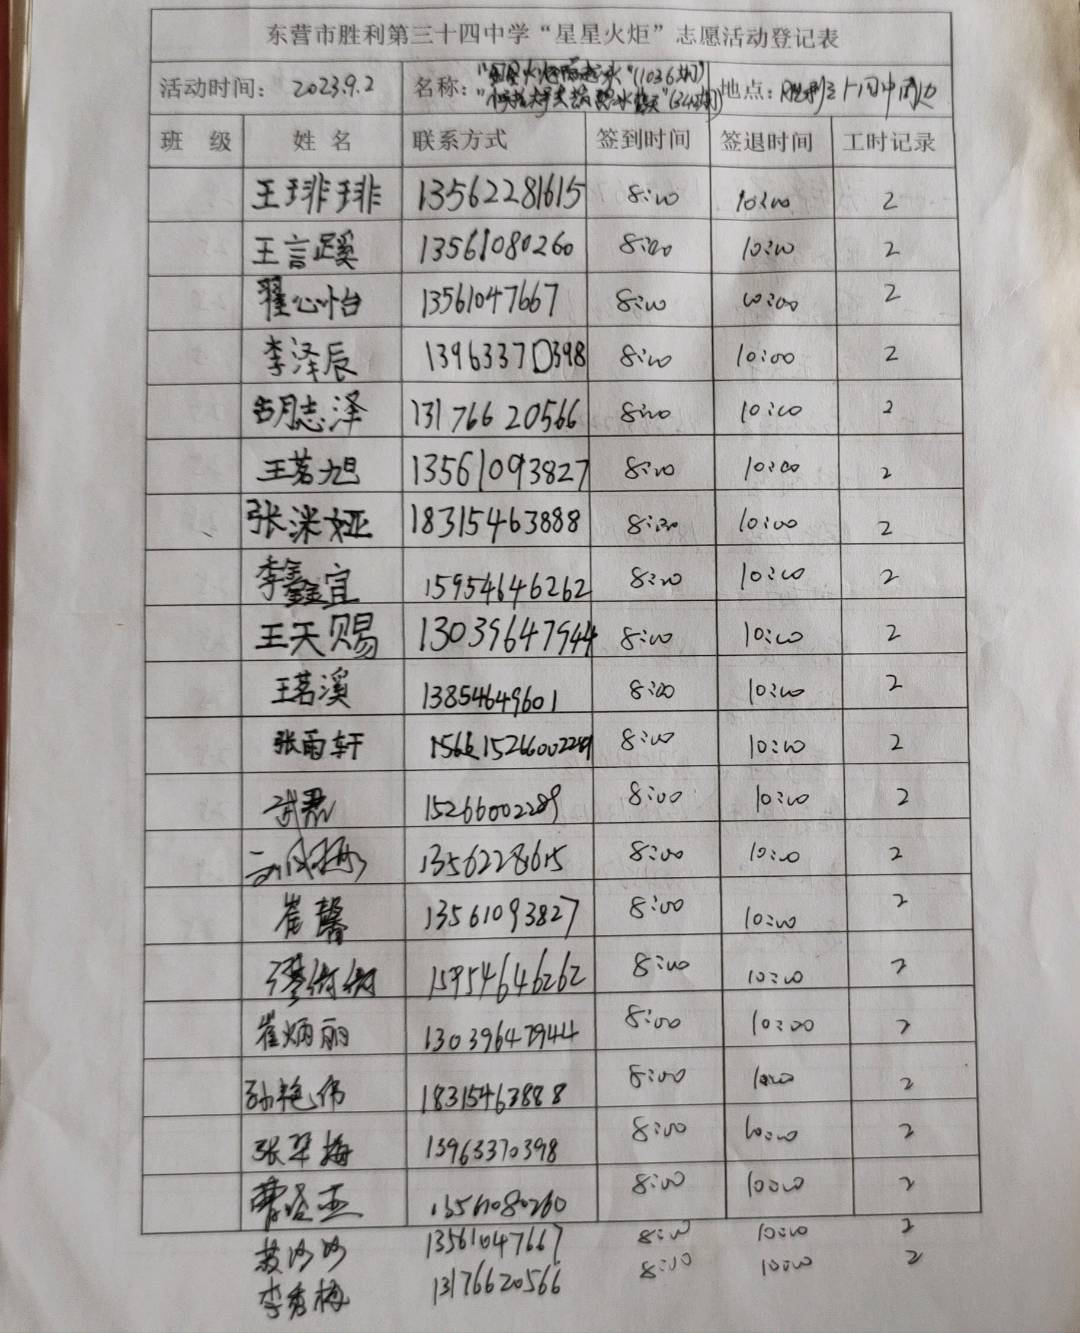 东营市胜利第三十四中学“星星火炬”志愿活动登记表
活动时间： 2023.9.2 名称： (1036期) 地点：
班 级 姓 名 联系方式 签到时间 签退时间 工时记录
王琲琲 13562281615 8:00 10:00 2
王言蹊 13561080260 8:00 10:00 2
翟心怡 13561047667 8:00 10:00 2
李泽辰 13963370398 8:00 10:00 2
胡志泽 13176620566 8:00 10:00 2
王茗旭 13561093827 8:00 10:00 2
张洣娅 18315463888 8:00 10:00 2
李鑫宜 15954646262 8:00 10:00 2
王天赐 13039647944 8:00 10:00 2
王茗溪 13854649601 8:00 10:00 2
张雨轩 15266002289 8:00 10:00 2
武君 15266002289 8:00 10:00 2
13562281615 8:00 10:00 2
崔馨 13561093827 8:00 10:00 2
15954646262 8:00 10:00 2
崔炳丽 13039647944 8:00 10:00 2
孙艳伟 18315463888 8:00 10:00 2
张翠梅 13963370398 8:00 10:00 2
13561080260 8:00 10:00 2
13561047667 8:00 10:00 2
李秀梅 13176620566 8:00 10:00 2